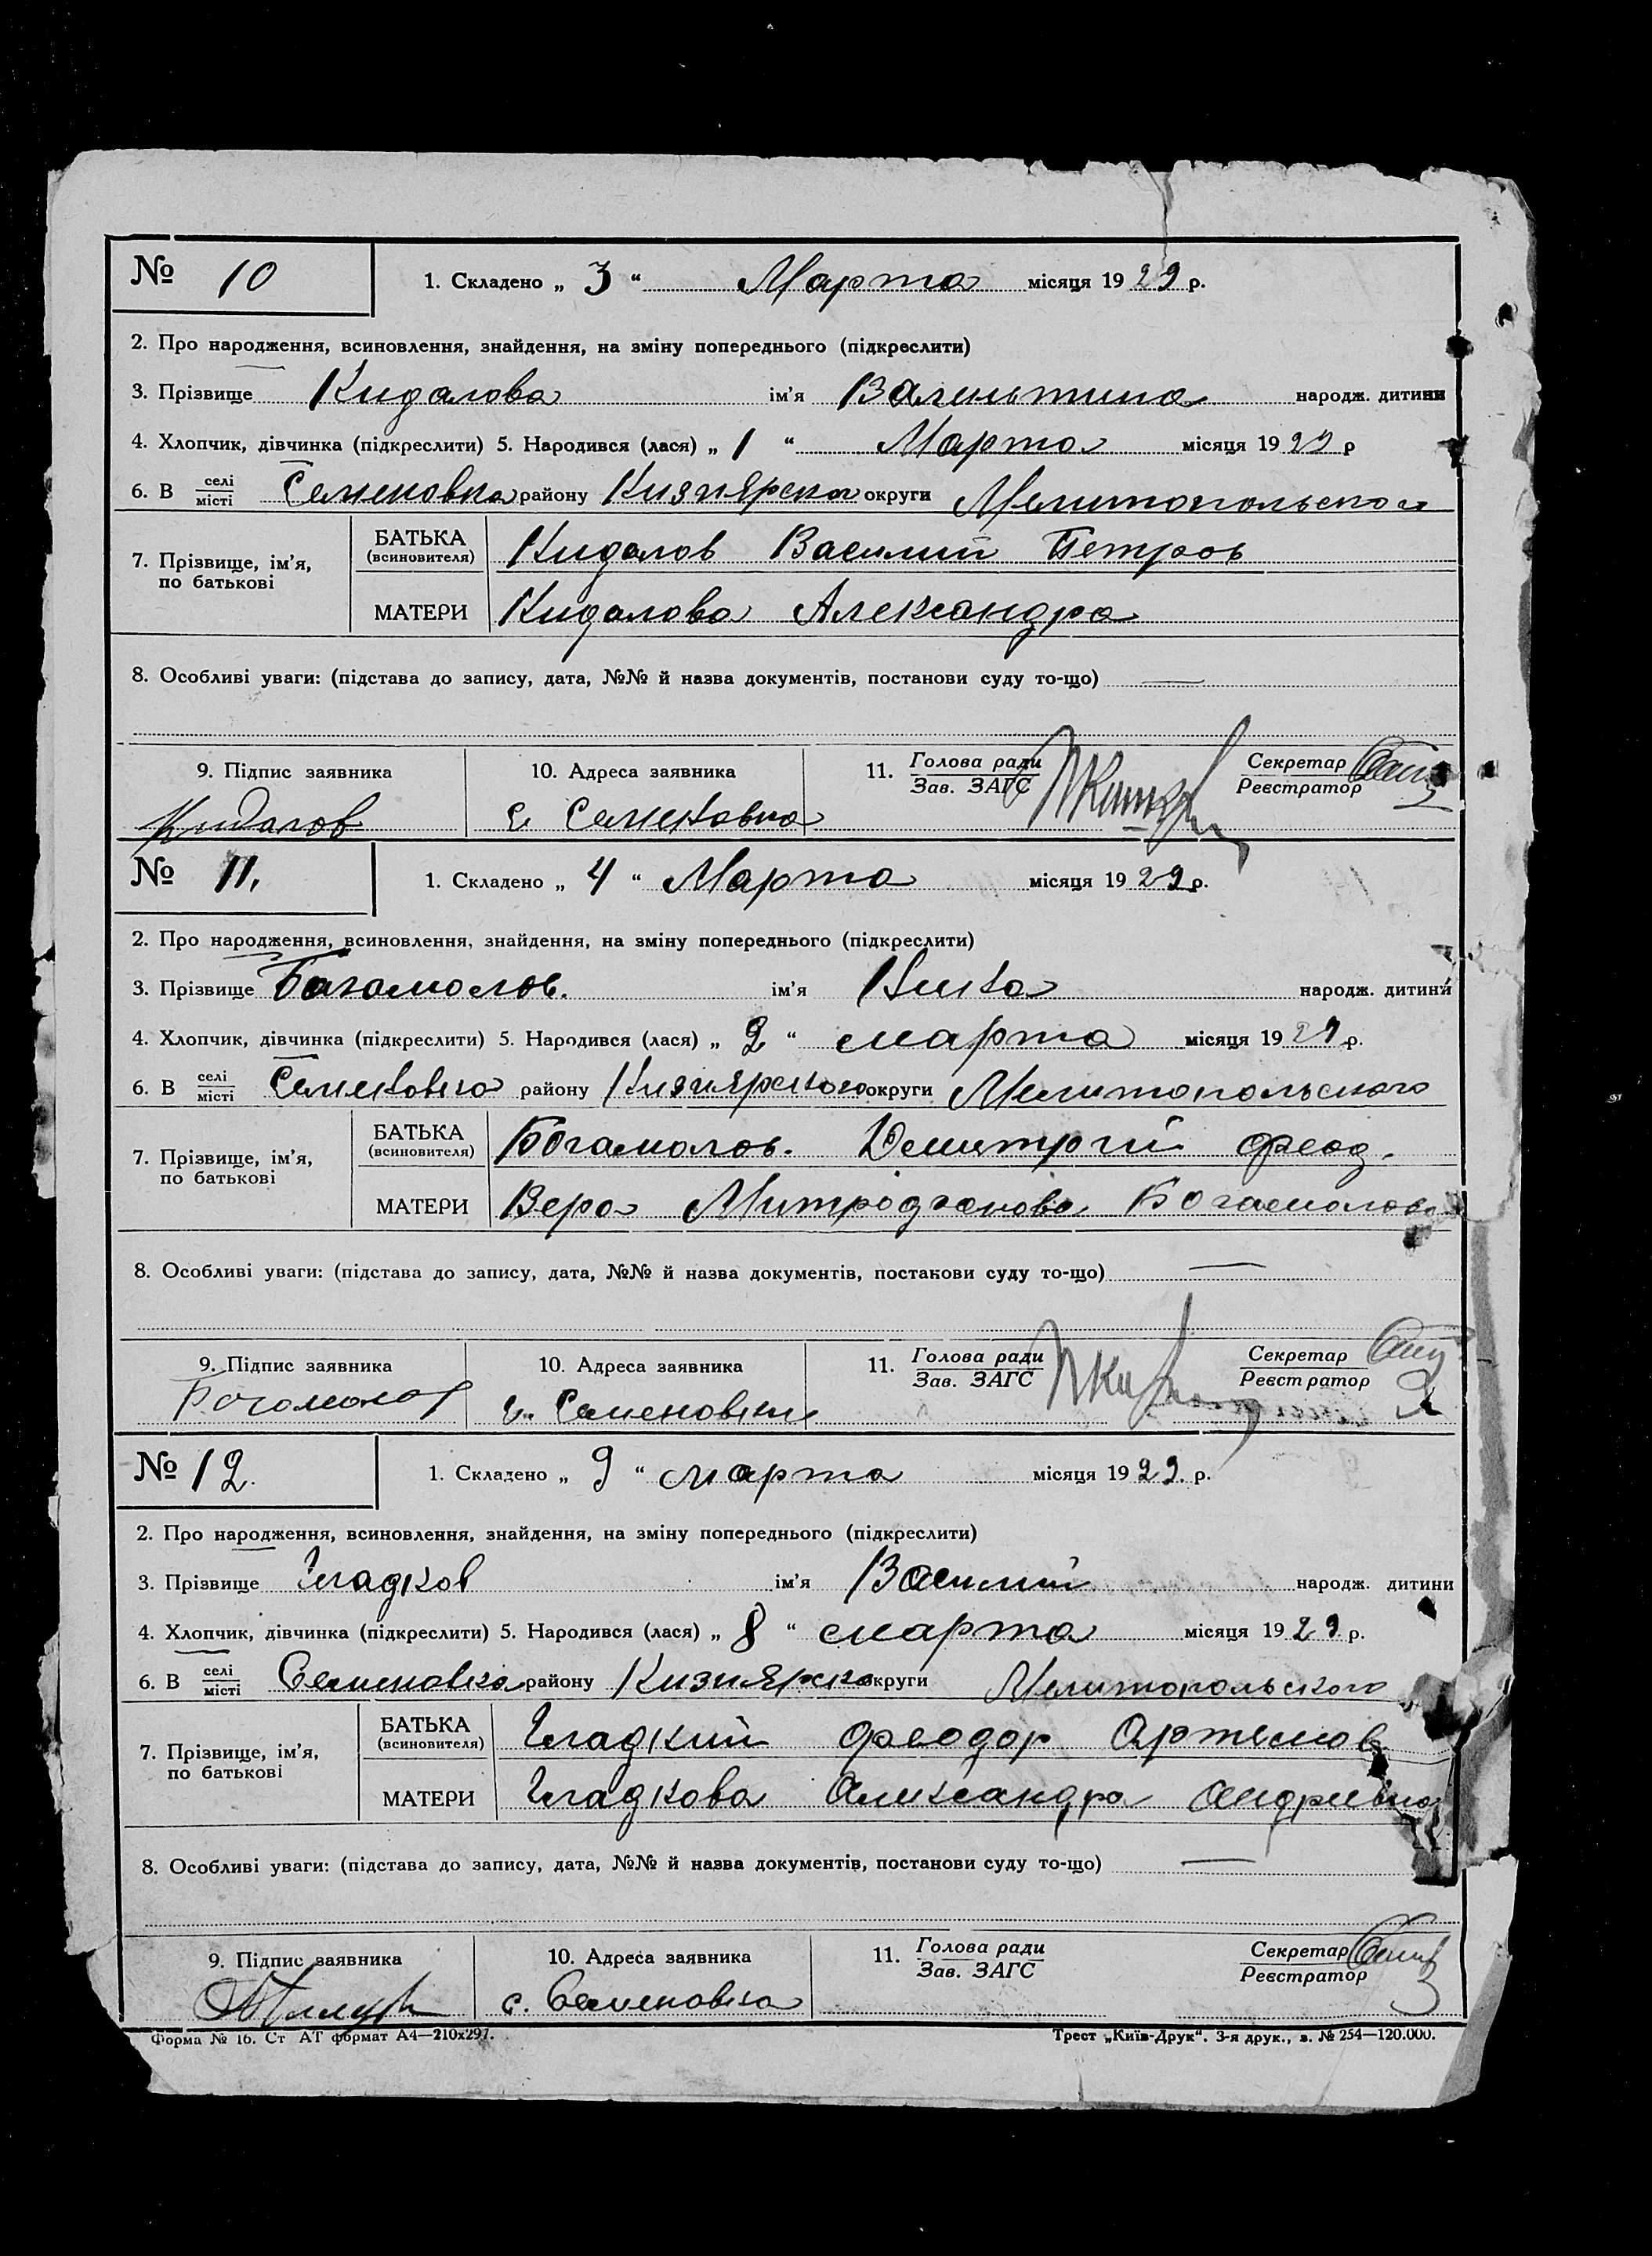 № 10 1. Складено „ 3 “ Марта місяця 1929 р.
2. Про народження, всиновлення, знайдення, на зміну попереднього (підкреслити)
3. Прізвище Кидалова ім'я Валентина народж. дитини
4. Хлопчик, дівчинка (підкреслити) 5. Народився (лася) „ 1 “ Марта місяця 1929 р
6. В селі місті Семеновка району Кизиярског округи Мелитопольског
7. Прізвище, ім'я, по батькові БАТЬКА (всиновителя) Кидалов Василий Петров
МАТЕРИ Кидалова Александра
8. Особливі уваги: (підстава до запису, дата, №№ й назва документів, постанови суду то-що) —
9. Підпис заявника 10. Адреса заявника 11. Голова ради Зав. ЗАГС Секретар Реєстратор
Кидалов с Семеновка
№ 11. 1. Складено „ 4 “ Марта місяця 1929 р.
2. Про народження, всиновлення, знайдення, на зміну попереднього (підкреслити)
3. Прізвище Богамолов. ім'я народж. дитини
4. Хлопчик, дівчинка (підкреслити) 5. Народився (лася) „ 2 “ марта місяця 1929 р.
6. В селі місті Семеновка району Кизиярского округи Мелитопольского
7. Прізвище, ім'я, по батькові БАТЬКА (всиновителя) Богамолов. Демитрий Феод.
МАТЕРИ Вера Богамолова
8. Особливі уваги: (підстава до запису, дата, №№ й назва документів, постанови суду то-що) —
9. Підпис заявника 10. Адреса заявника 11. Голова ради Зав. ЗАГС Секретар Реєстратор
Богомолов с. Семеновки
№ 12. 1. Складено „ 9 “ марта місяця 1929. р.
2. Про народження, всиновлення, знайдення, на зміну попереднього (підкреслити)
3. Прізвище Гладков ім'я Василий народж. дитини
4. Хлопчик, дівчинка (підкреслити) 5. Народився (лася) „ 8 “ марта місяця 1929. р.
6. В селі місті Семеновка району Кизиярско округи Мелитопольского
7. Прізвище, ім'я, по батькові БАТЬКА (всиновителя) Гладкий Феодор Артемов
МАТЕРИ Гладкова Александра Андревна
8. Особливі уваги: (підстава до запису, дата, №№ й назва документів, постанови суду то-що) —
9. Підпис заявника 10. Адреса заявника 11. Голова ради Зав. ЗАГС Секретар Реєстратор
с. Семеновка
Форма № 16. Ст АТ формат А4—210х297. Трест „Київ-Друк“. 3-я друк., з. № 254—120.000.